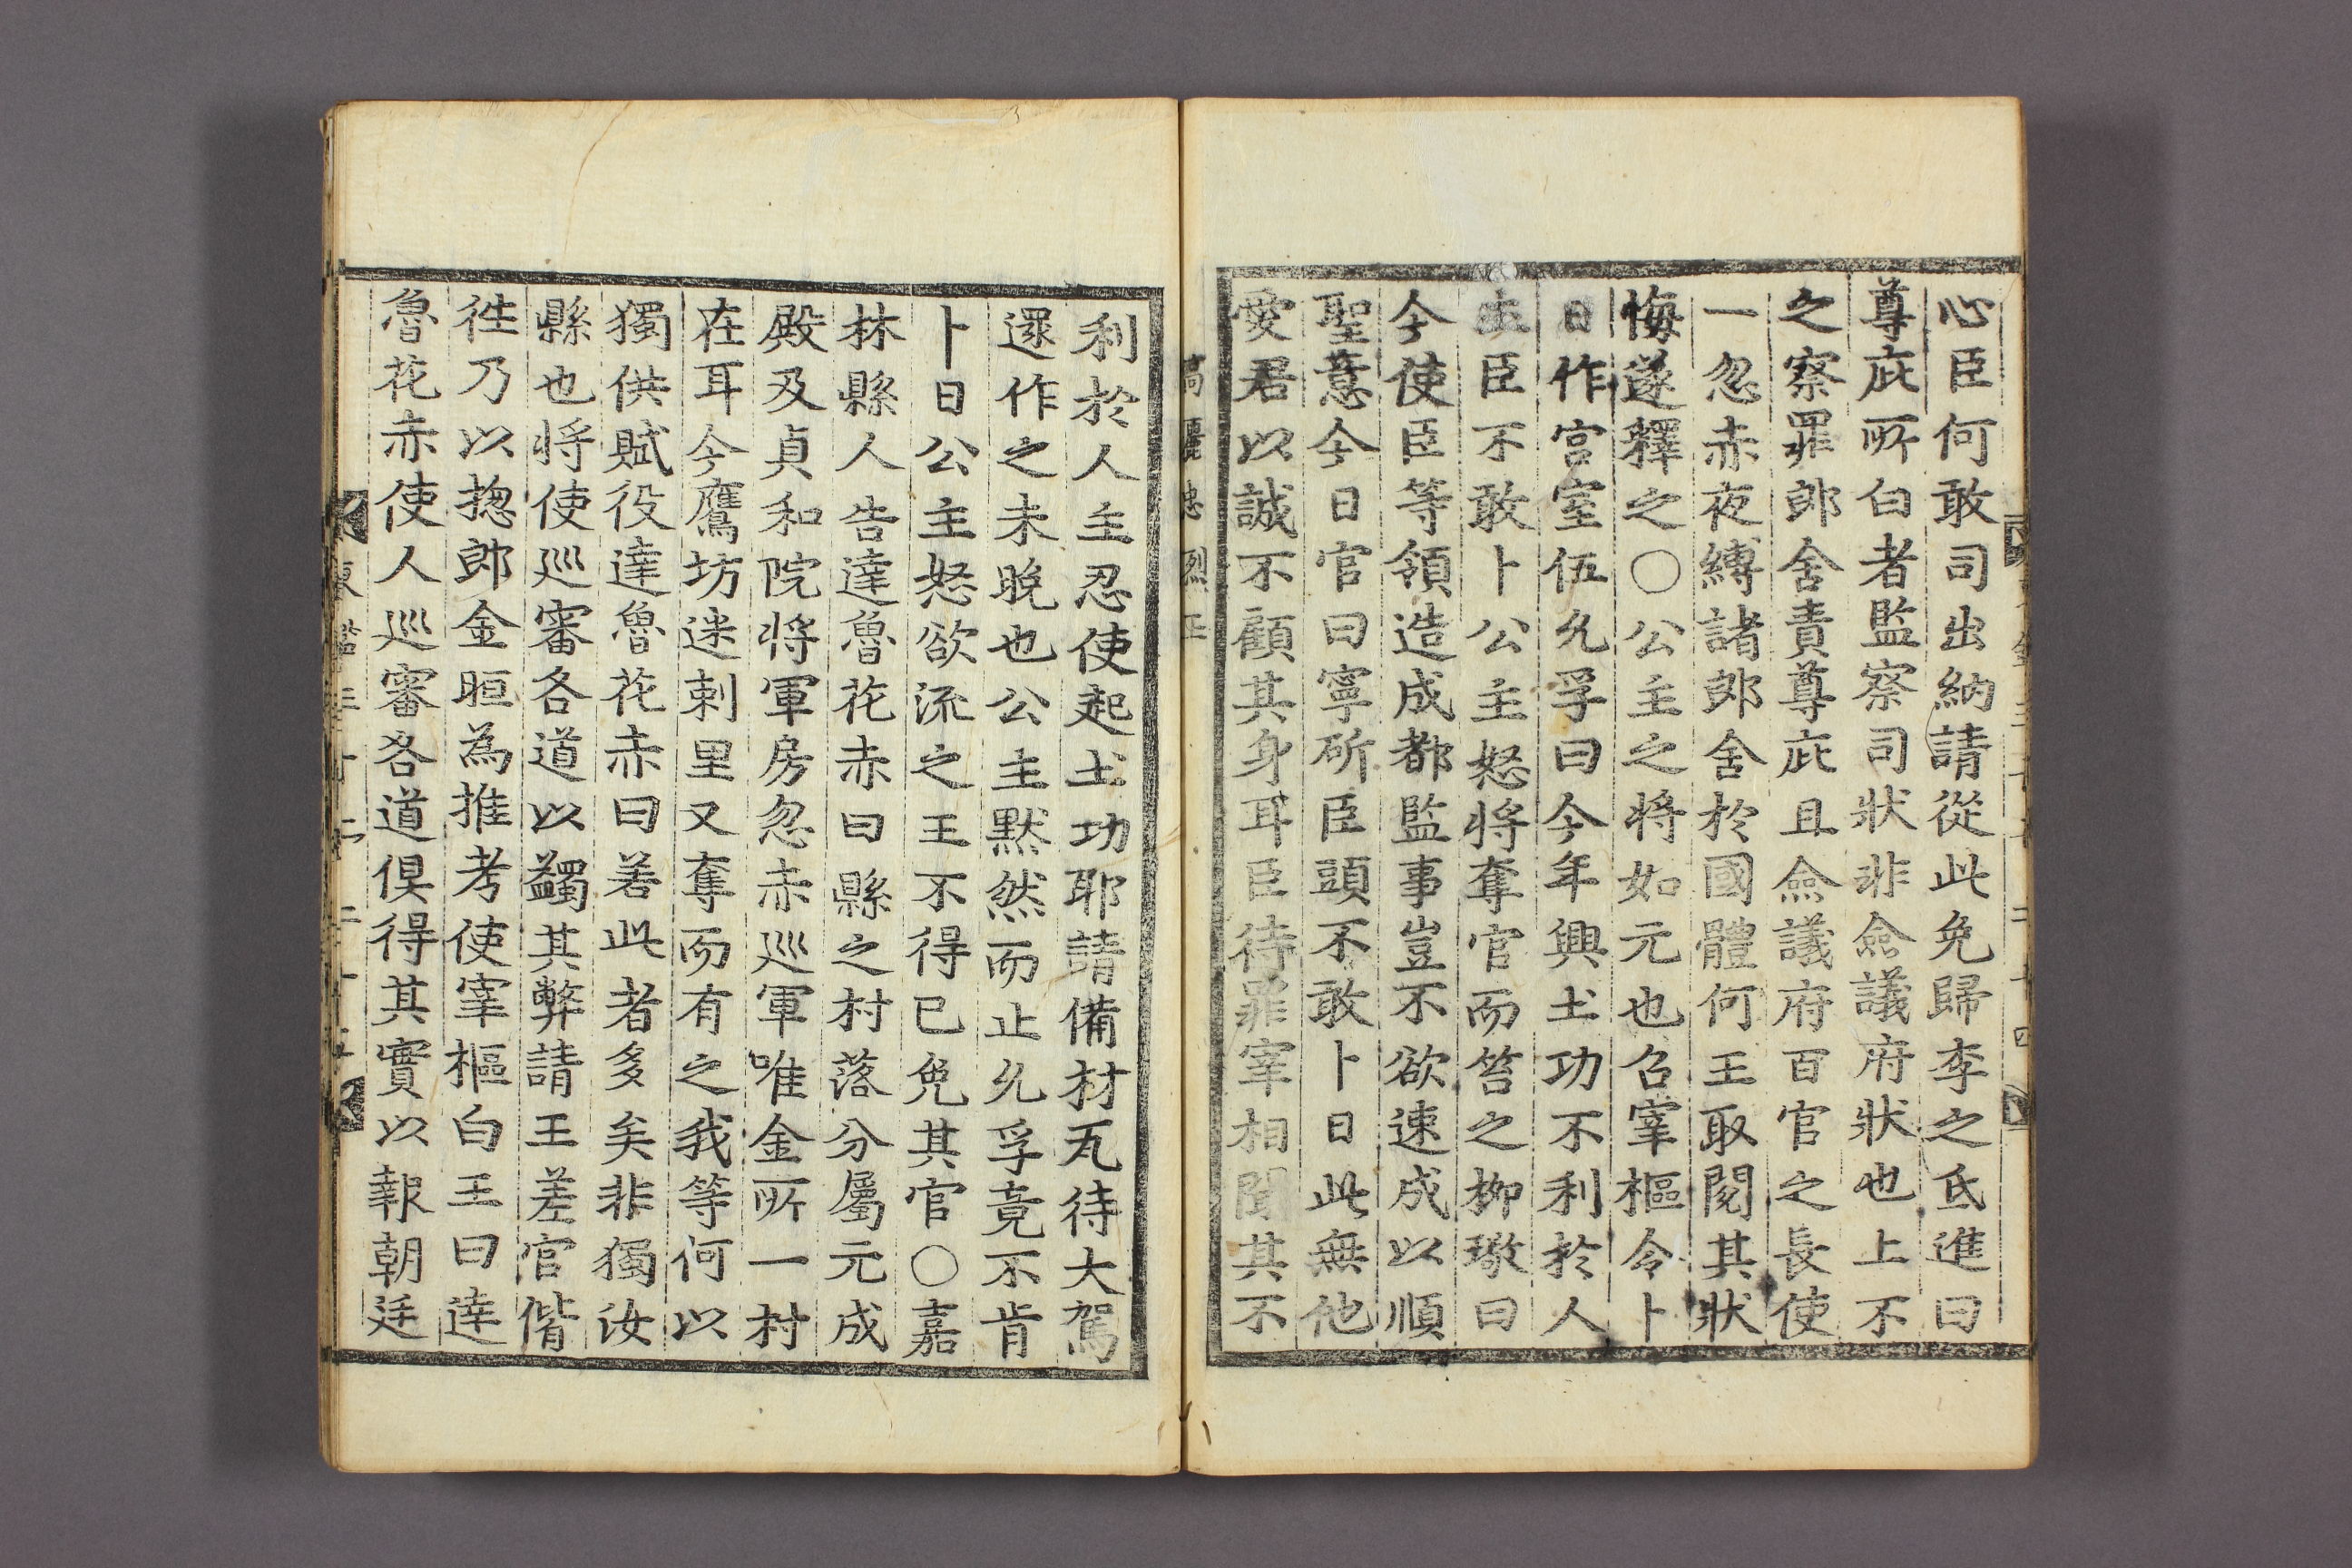 心臣何敢司出納請從此免歸李之氐進曰
尊庇所白者監察司狀非僉議府狀也上不
之察罪郎舍責尊庇且僉議府百官之長使
一忽赤夜縛諸郎舍於國體何王取閱其狀
悔遂釋之〇公主之將如元也召宰樞令卜
日作宮室伍允孚曰今年興土功不利於人
主臣不敢卜公主怒將奪官而笞之柳璥曰
今使臣等領造成都監事豈不欲速成以順
聖意今日官曰寧斫臣頭不敢卜日此無他
愛君以誠不顧其身耳臣待罪宰相聞其不
高麗忠烈王
利於人主忍使起土功耶請備材瓦待大駕
還作之未晚也公主默然而止允孚竟不肯
卜日公主怒欲流之王不得已免其官〇嘉
林縣人告達魯花赤曰縣之村落分屬元成
殿及貞和院將軍房忽赤巡軍唯金所一村
在耳今鷹坊迷剌里又奪而有之我等何以
獨供賦役達魯花赤曰若此者多矣非獨汝
縣也將使巡審各道以蠲其弊請王差官偕
徃乃以揔郎金晅為推考使宰樞白王曰達
魯花赤使人巡審各道俱得其實以報朝廷
東鑑三十二 二十五